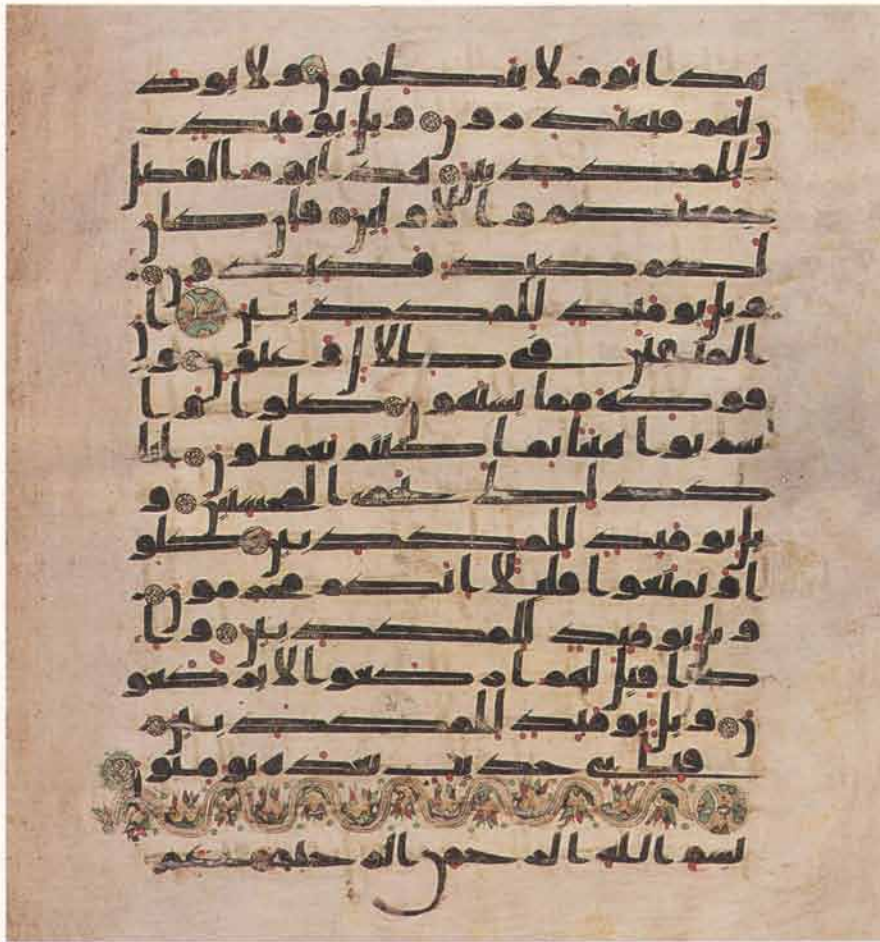 هذا يوم لا ينطقون ولا يوذ
ن لهم فيعتذرون ويل يومئذ
للمكذبين هذا يوم الفصل
جمعنكم والاولين فان كان
لكم كيد فكيدون
ويل يومئذ للمكذبين ان
المتقين في ظلال وعيون و
فوكه مما يشتهون كلوا وا
شربوا هنيا بما كنتم تعملون انا
كذلك نجزي المحسنين و
يل يومئذ للمكذبين كلو
ا وتمتعوا قليلا انكم مجرمون
ويل يومئذ للمكذبين وا
ذا قيل لهم اركعوا لا يركعو
ن ويل يومئذ للمكذبين
فباي حديث بعده يومنون
بسم الله الرحمن الرحيم